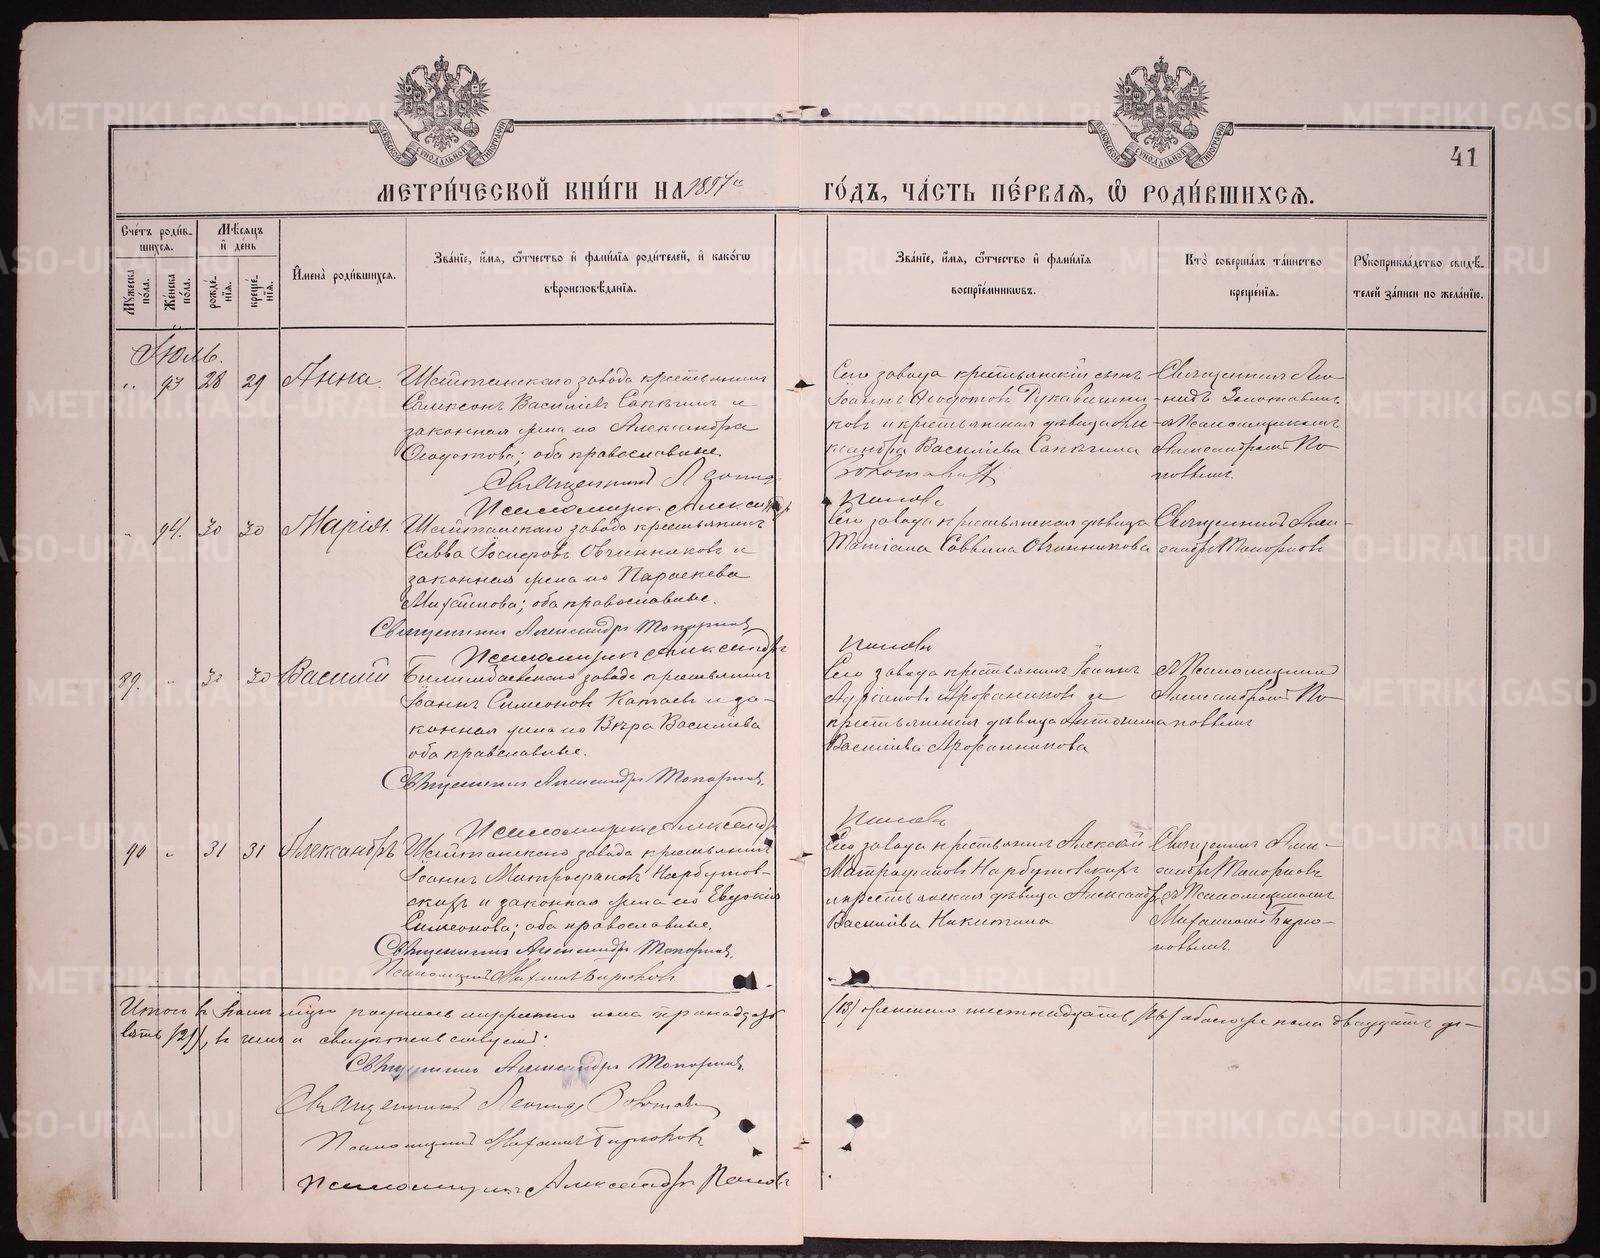 41
МЕТРИ́ЧЕСКОЙ КНИ́ГИ НА 1897й ГО́ДЪ, ЧА́СТЬ ПЕ́РВАЯ, Ѿ РОДИ́ВШИХСЯ.
Сче́тъ роди́вшихся.
Му́жеска по́ла.
Же́нска по́ла.
Мѣ́сяцъ и҆ де́нь
рожде́нїя.
креще́нїя.
И҆мена̀ роди́вшихся.
Зва́нїе, и҆́мя, ѻ҆́тчество и҆ фами́лїя роди́телей, и҆ како́гѡ
вѣроисповѣ́данїя.
Зва́нїе, и҆́мя, ѻ҆́тчество и҆ фами́лїя
воспрїе́мникѡвъ.
Кто̀ соверша́лъ та́инство
креще́нїя.
Рꙋкоприкла́дство свидѣ́-
телей за́писи по жела́нїю.
Іюль.
" 93 28 29 Анна.
Шайтанскаго завода крестьянинъ
Самсонъ Васильевъ и
законная жена его Александра
Ѳедотова; оба православные.
Священникъ Леонид
Псаломщикъ Александръ
Сего завода крестьянскій сынъ
Іоаннъ Ѳеодотовъ Рукавишни-
ковъ и крестьянская дѣвица Але-
ксандра Васильева
Попов
Священникъ Лео-
нидъ
съ Псаломщикомъ
Александромъ По-
повымъ.
" 94. 30 30 Марія.
Шайтанскаго завода крестьянинъ
Савва Іосифовъ Овчинниковъ и
законная жена его Параскева
Михайлова; оба православные.
Священникъ Александръ Топорковъ
Псаломщикъ Александръ
Сего завода крестьянская дѣвица
Татіана Саввина Овчинникова
Попов
Священникъ Алек-
сандръ Топорковъ
89. " 30 30 Василій
Билимбаевскаго завода крестьянинъ
Іоаннъ Симеоновъ Катаевъ и за-
конная жена его Вѣра Васильева
оба православные.
Священникъ Александръ Топорковъ.
Псаломщикъ Александръ
Сего завода крестьянинъ Іоаннъ
Адріановъ и
крестьянская дѣвица Антонина
Васильева
Попов
съ Псаломщикомъ
Александромъ По-
повымъ
90 " 31 31 Александръ
Шайтанскаго завода крестьянинъ
Іоаннъ Митрофановъ Нарбутов-
скихъ и законная жена его Евдокія
Симеонова; оба православные.
Священникъ Александръ Топорковъ.
Псаломщикъ Михаилъ Бирюковъ
Сего завода крестьянинъ Алексѣй
Митрофановъ Нарбутовскихъ
и крестьянская дѣвица Александра
Васильева Никитина
Священникъ Алек-
сандръ Топорковъ
съ Псаломщикомъ
Михаиломъ Бирю-
ковымъ.
Итого въ Іюлѣ мѣсяцѣ родилось мужеска пола тринадцать
(13) женскаго шестнадцать (16) обоего же пола двадцать де-
вять (29), въ чемъ и свидѣтельствуемъ:
Священникъ Александръ Топорковъ.
Священникъ Леонидъ
Псаломщикъ Михаилъ Бирюковъ
Псаломщикъ Александръ Поповъ
METRIKI.GASO-URAL.RU